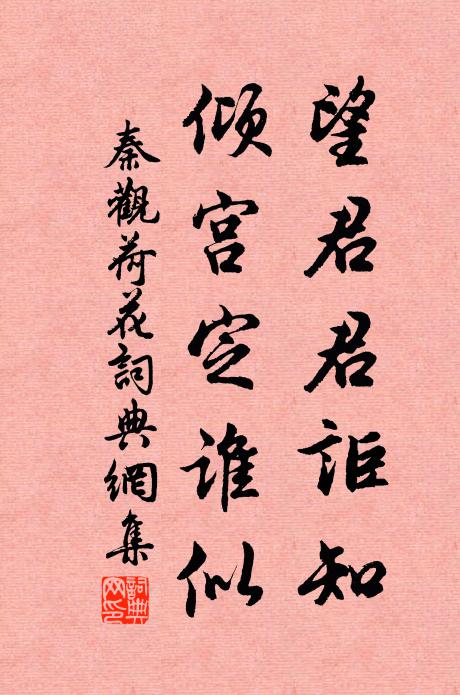 望君君詎知
傾宮定誰似
秦觀荷花詞典網集
詞典網印